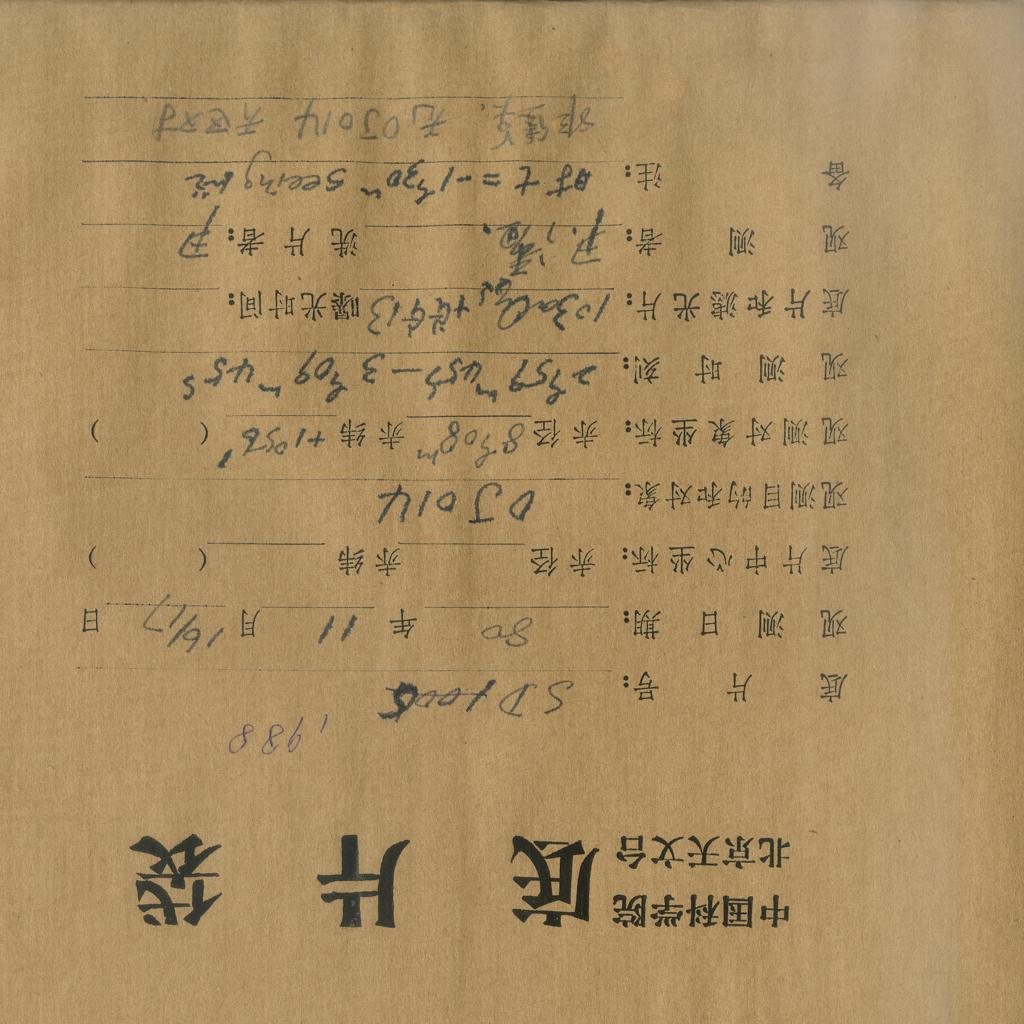 中国科学院
北京天文台
底片袋
1988
底片号: SD1005
观测日期: 80年11月16/17日
底片中心坐标: 赤径 赤纬 ( )
观测目的和对象: OJ014
观测对象坐标: 赤径 8h08m 赤纬 +1°56′ ( )
观测时刻: 2h59m45s—3h09m45s
底片和滤光片: 103aO+GG13 曝光时间:
观测者: 洗片者: 尹
备注: 时 t=-1h30m seeing
无OJ014 天区对